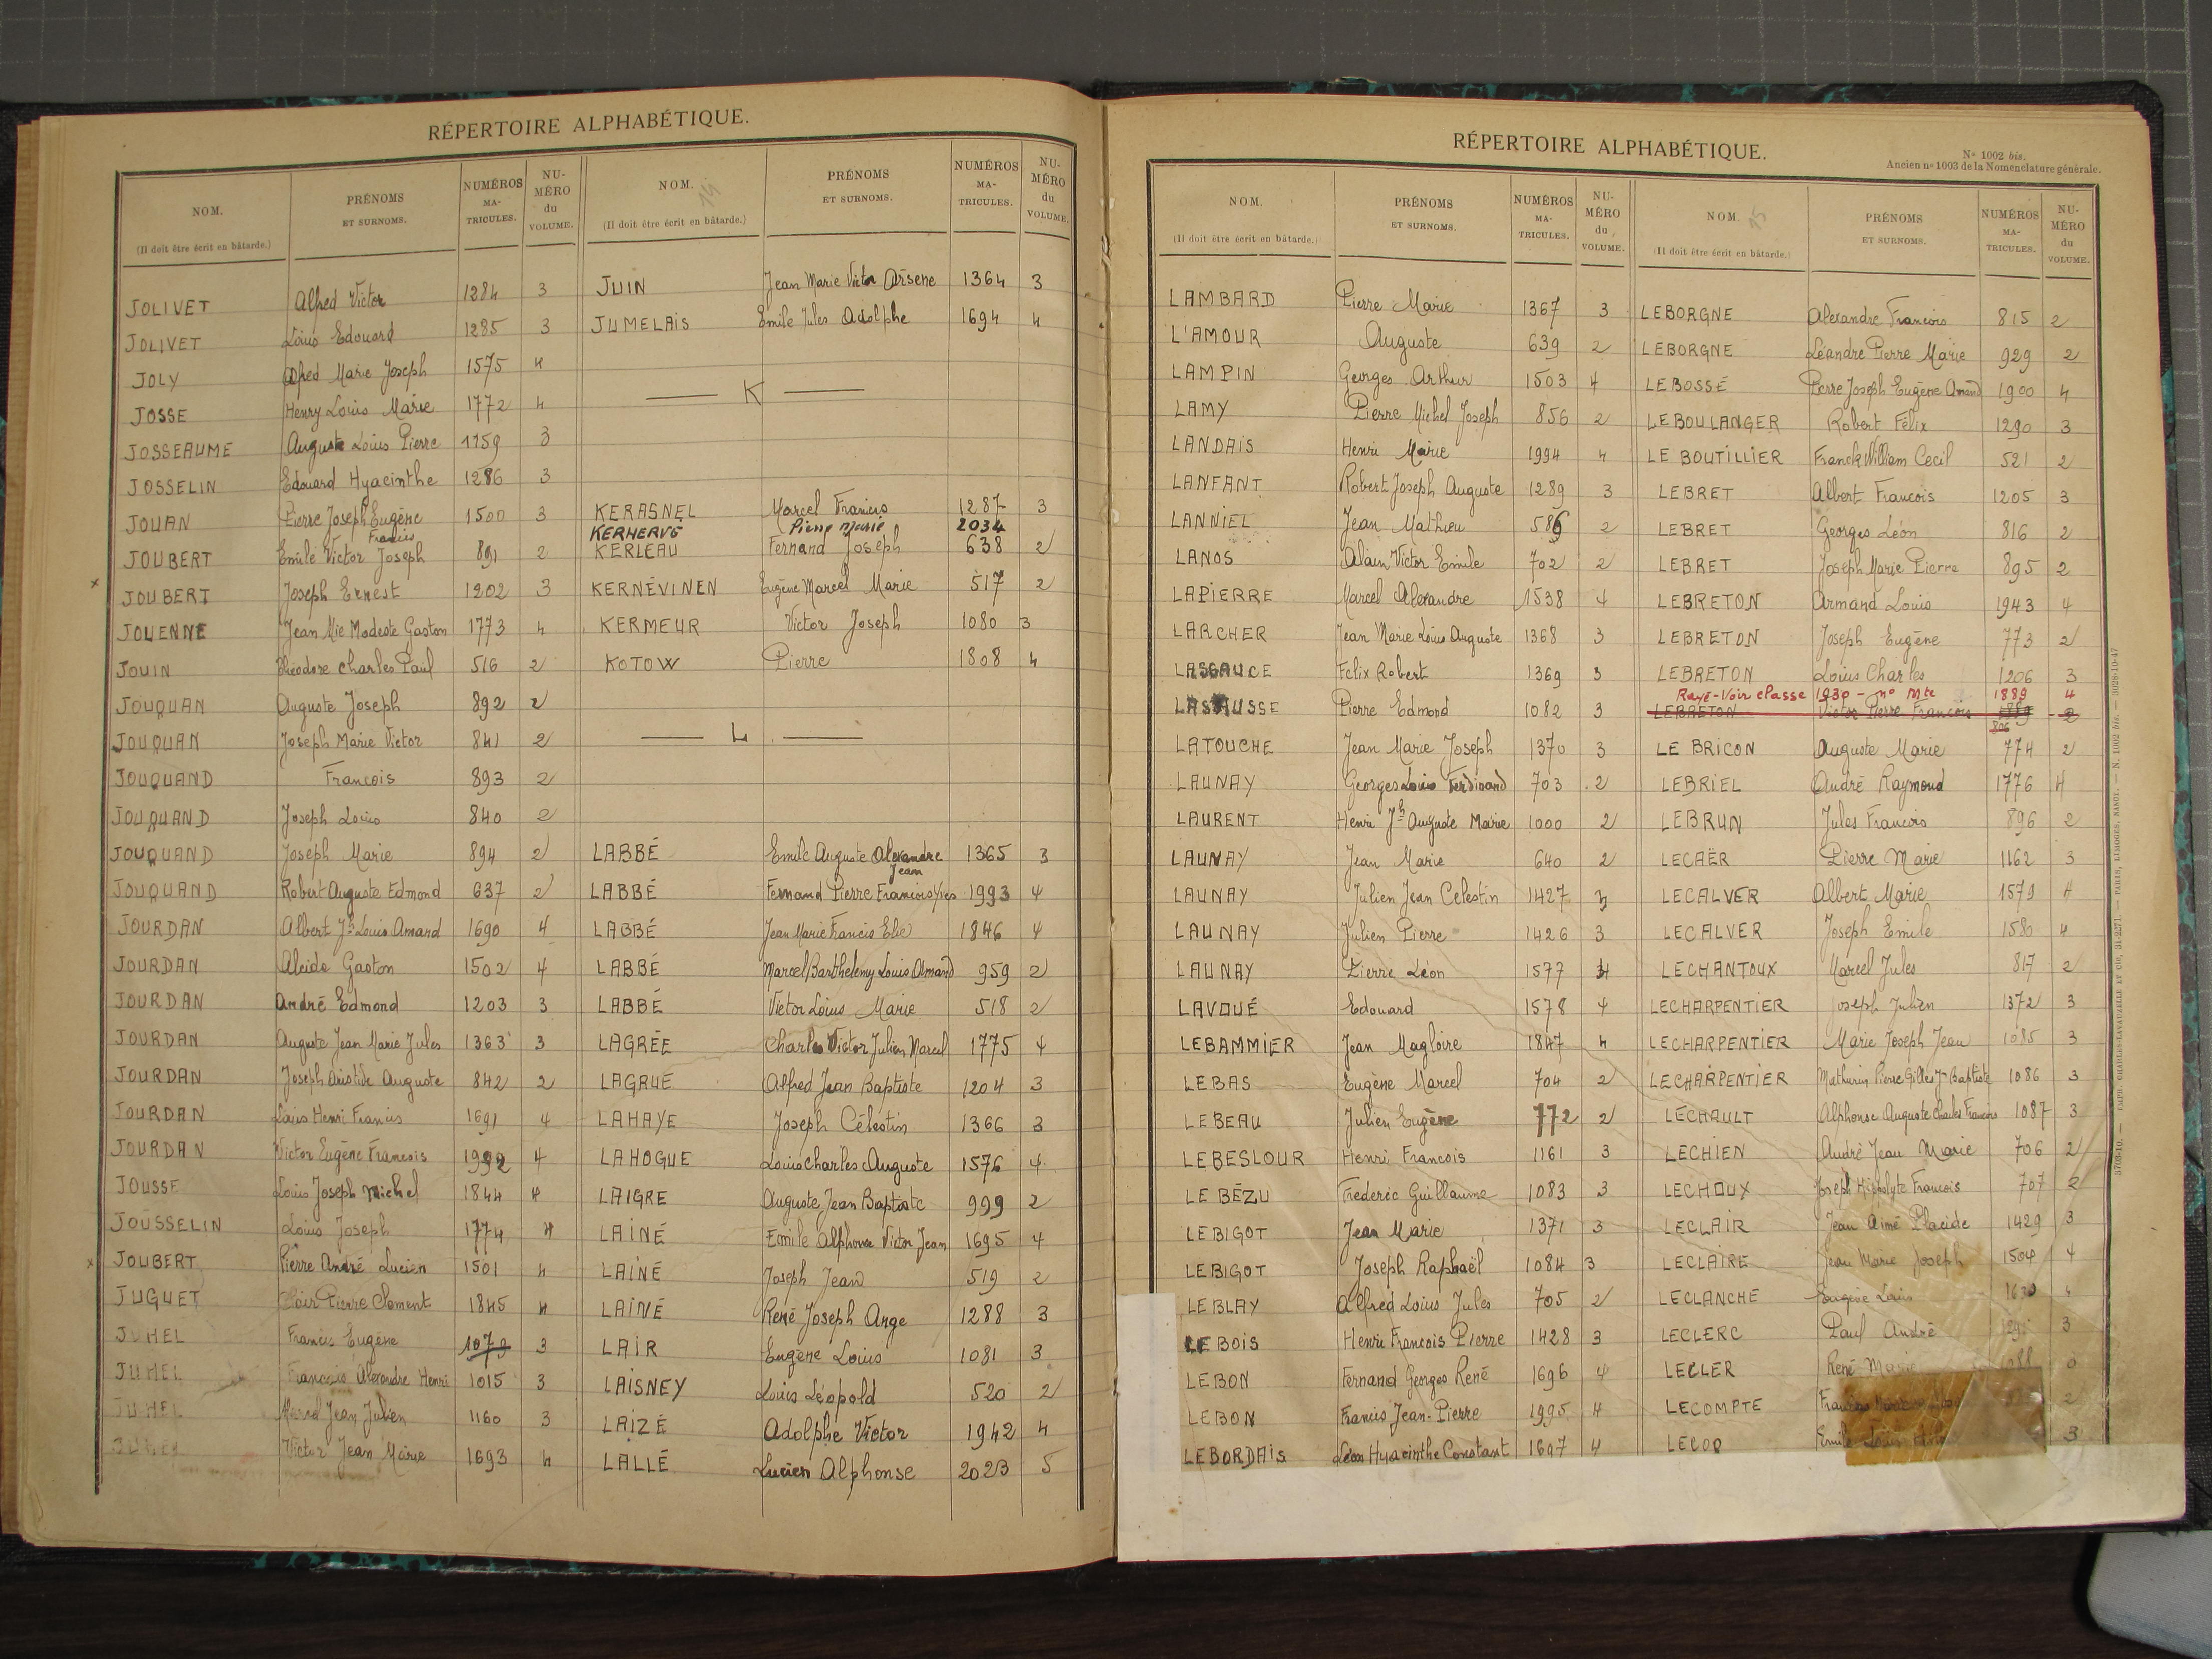 RÉPERTOIRE ALPHABÉTIQUE.
NOM. (Il doit être écrit en bâtarde.) PRÉNOMS ET SURNOMS. NUMÉROS MA-TRICULES. NU-MÉRO du VOLUME.
JOLIVET Alfred Victor 1284 3
JOLIVET Louis Edouard 1285 3
JOLY Alfred Marie Joseph 1575 4
JOSSE Henry Louis Marie 1772 4
JOSSEAUME Auguste Louis Pierre 1159 3
JOSSELIN Edouard Hyacinthe 1286 3
JOUAN Pierre Joseph Eugène 1500 3
Francis
JOUBERT Emile Victor Joseph 891 2
x JOUBERT Joseph Ernest 1202 3
JOUENNE Jean Mie Modeste Gaston 1773 4
JOUIN Théodore Charles Paul 516 2
JOUQUAN Auguste Joseph 892 2
JOUQUAN Joseph Marie Victor 841 2
JOUQUAND Francois 893 2
JOUQUAND Joseph Louis 840 2
JOUQUAND Joseph Marie 894 2
JOUQUAND Robert Auguste Edmond 637 2
JOURDAN Albert Jh Louis Amand 1690 4
JOURDAN Alcide Gaston 1502 4
JOURDAN André Edmond 1203 3
JOURDAN Auguste Jean Marie Jules 1363 3
JOURDAN Joseph Aristide Auguste 842 2
JOURDAN Louis Henri Francis 1691 4
JOURDAN Victor Eugène Francois 1992 4
JOUSSE Louis Joseph Michel 1844 4
JOUSSELIN Louis Joseph 1774 4
x JOUBERT Pierre André Lucien 1501 4
JUGUET Clair Pierre Clement 1845 4
JUHEL Francis Eugène 1079 3
JUHEL Francois Alexandre Henri 1015 3
JUHEL Marcel Jean Julien 1160 3
JUHEL Victor Jean Marie 1693 4
NOM. 14 (Il doit être écrit en bâtarde.) PRÉNOMS ET SURNOMS. NUMÉROS MA-TRICULES. NU-MÉRO du VOLUME.
JUIN Jean Marie Victor Arsene 1364 3
JUMELAIS Emile Jules Adolphe 1694 4
K
KERASNEL Marcel Francis 1287 3
KERHERVÉ Pierre Marie 2034
KERLEAU Fernand Joseph 638 2
KERNÉVINEN Eugène Marcel Marie 517 2
KERMEUR Victor Joseph 1080 3
KOTOW Pierre 1808 4
L
LABBÉ Emile Auguste Alexandre 1365 3
Jean
LABBÉ Fernand Pierre Francois Yves 1993 4
LABBÉ Jean Marie Francis Elie 1846 4
LABBÉ Marcel Barthelemy Louis Armand 959 2
LABBÉ Victor Louis Marie 518 2
LAGRÉE Charles Victor Julien Marcel 1775 4
LAGRUE Alfred Jean Baptiste 1204 3
LAHAYE Joseph Célestin 1366 3
LAHOGUE Louis Charles Auguste 1576 4
LAIGRE Auguste Jean Baptiste 999 2
LAINÉ Emile Alphonse Victor Jean 1695 4
LAINÉ Joseph Jean 519 2
LAINÉ René Joseph Ange 1288 3
LAIR Eugène Louis 1081 3
LAISNEY Louis Léopold 520 2
LAIZÉ Adolphe Victor 1942 4
LALLÉ Lucien Alphonse 2023 5
RÉPERTOIRE ALPHABÉTIQUE.
N° 1002 bis.
Ancien n° 1003 de la Nomenclature générale.
NOM. (Il doit être écrit en bâtarde.) PRÉNOMS ET SURNOMS. NUMÉROS MA-TRICULES. NU-MÉRO du VOLUME.
LAMBARD Pierre Marie 1367 3
L'AMOUR Auguste 639 2
LAMPIN Georges Arthur 1503 4
LAMY Pierre Michel Joseph 856 2
LANDAIS Henri Marie 1994 4
LANFANT Robert Joseph Auguste 1289 3
LANNIEL Jean Mathieu 586 2
LANOS Alain Victor Emile 702 2
LAPIERRE Marcel Alexandre 1538 4
LARCHER Jean Marie Louis Auguste 1368 3
LASSAUCE Felix Robert 1369 3
LASAUSSE Pierre Edmond 1082 3
LATOUCHE Jean Marie Joseph 1370 3
LAUNAY Georges Louis Ferdinand 703 2
LAURENT Henri Jh Auguste Marie 1000 2
LAUNAY Jean Marie 640 2
LAUNAY Julien Jean Celestin 1427 3
LAUNAY Julien Pierre 1426 3
LAUNAY Pierre Léon 1577 4
LAVOUÉ Edouard 1578 4
LEBAMMIER Jean Magloire 1847 4
LEBAS Eugène Marcel 704 2
LEBEAU Julien Eugène 772 2
LEBESLOUR Henri Francois 1161 3
LE BÉZU Frederic Guillaume 1083 3
LEBIGOT Jean Marie 1371 3
LEBIGOT Joseph Raphaël 1084 3
LEBLAY Alfred Louis Jules 705 2
LEBOIS Henri Francois Pierre 1428 3
LEBON Fernand Georges René 1696 4
LEBON Francis Jean-Pierre 1995 4
LEBORDAIS Léon Hyacinthe Constant 1697 4
NOM. 15 (Il doit être écrit en bâtarde.) PRÉNOMS ET SURNOMS. NUMÉROS MA-TRICULES. NU-MÉRO du VOLUME.
LEBORGNE Alexandre Francois 815 2
LEBORGNE Léandre Pierre Marie 929 2
LEBOSSÉ Pierre Joseph Eugène Amand 1900 4
LEBOULANGER Robert Félix 1290 3
LE BOUTILLIER Franck William Cecil 521 2
LEBRET Albert Francois 1205 3
LEBRET Georges Léon 816 2
LEBRET Joseph Marie Pierre 895 2
LEBRETON Armand Louis 1943 4
LEBRETON Joseph Eugène 773 2
LEBRETON Louis Charles 1206 3
Rayé - Voir classe 1930 - n° Mte 1889 4
LEBRETON Victor Pierre Francois 1889 2
806
LE BRICON Auguste Marie 774 2
LEBRIEL André Raymond 1776 4
LEBRUN Jules Francois 896 2
LECAËR Pierre Marie 1162 3
LECALVER Albert Marie 1579 4
LECALVER Joseph Emile 1580 4
LECHANTOUX Marcel Jules 817 2
LECHARPENTIER Joseph Julien 1372 3
LECHARPENTIER Marie Joseph Jean 1085 3
LECHARPENTIER Mathurin Pierre Gilles Jn Baptiste 1086 3
LÉCHAULT Alphonse Auguste Charles Francois 1087 3
LECHIEN André Jean Marie 706 2
LECHOUX Joseph Hippolyte Francois 707 2
LECLAIR Jean Aimé Placide 1429 3
LECLAIRE Jean Marie Joseph 1504 4
LECLANCHE Eugène Louis
LECLERC Paul André 3
LECLER René Marie
LECOMPTE 2
LECOQ Emile Louis 3